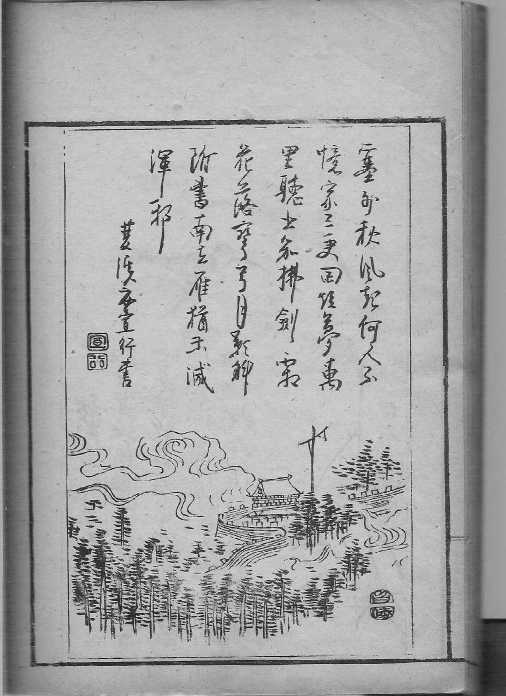 塞外秋風起何人不
憶家三更回夢萬
里聽笳拂劍霜
花落彎弓月影斜
附書南去雁猶未滅
渾邪
行書